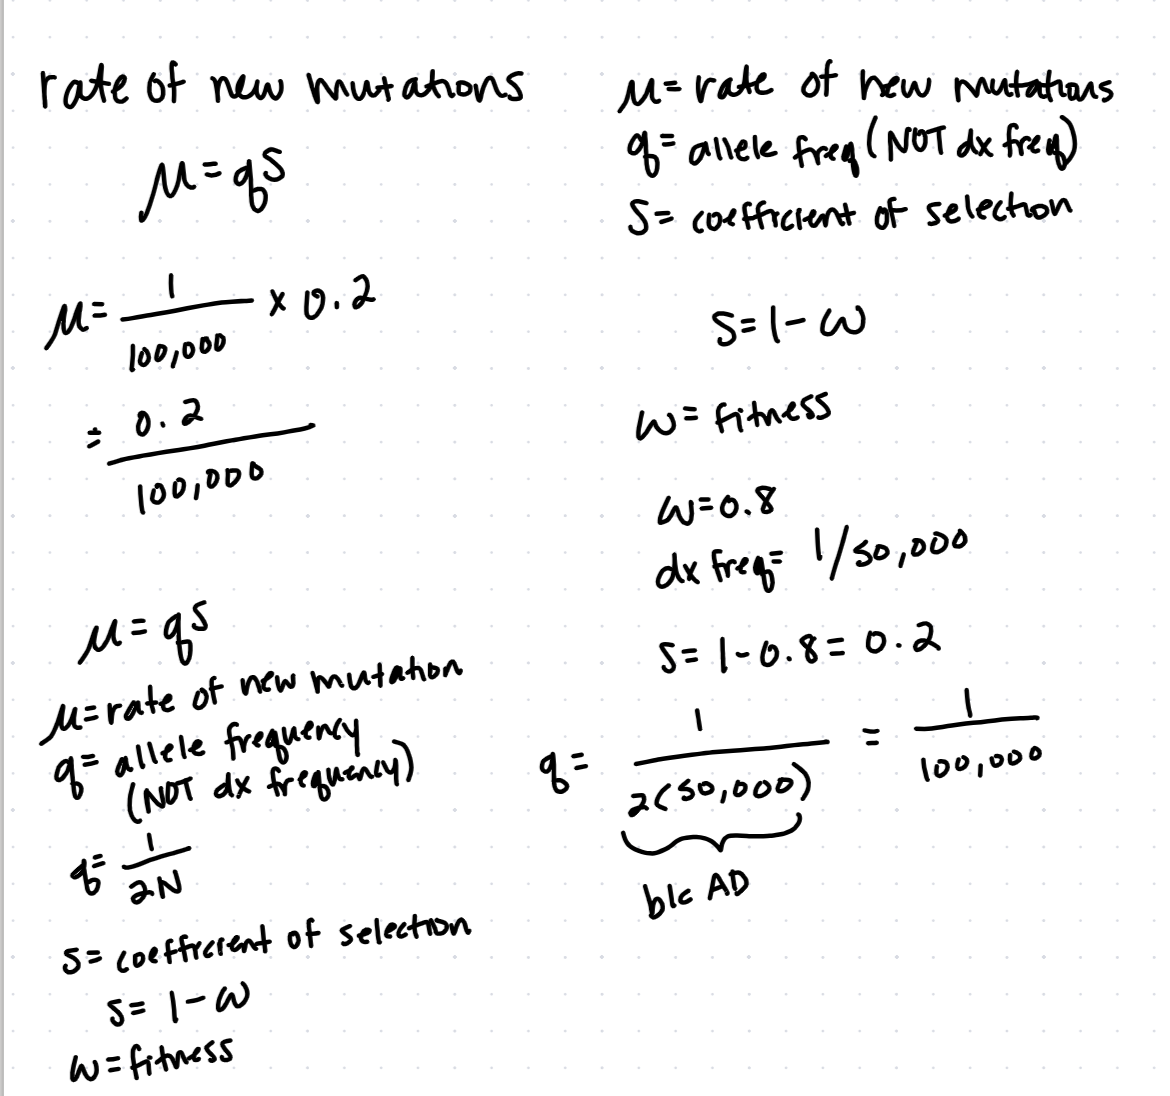 rate of new mutations
μ = qs
μ = 1/100,000 × 0.2
= 0.2/100,000
μ = qs
μ = rate of new mutation
q = allele frequency
(NOT dx frequency)
q = 1/2N
s = coefficient of selection
s = 1 - ω
ω = fitness
μ = rate of new mutations
q = allele freq (NOT dx freq)
S = coefficient of selection
S = 1 - ω
ω = fitness
ω = 0.8
dx freq = 1/50,000
S = 1 - 0.8 = 0.2
q = 1/2(50,000) = 1/100,000
b/c AD